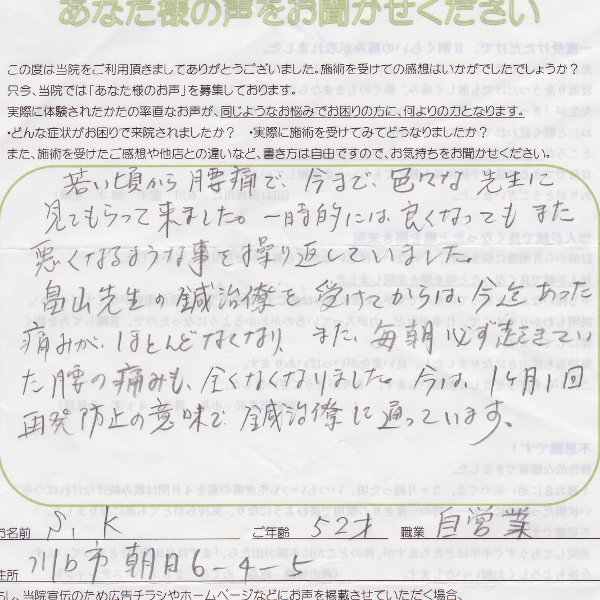 あなた様の声をお聞かせください
この度は当院をご利用頂きましてありがとうございました。施術を受けての感想はいかがでしたでしょうか？
只今、当院では「あなた様のお声」を募集しております。
実際に体験されたかたの率直なお声が、同じようなお悩みでお困りの方に、何よりの力となります。
・どんな症状がお困りで来院されましたか？　・実際に施術を受けてみてどうなりましたか？
また、施術を受けたご感想や他店との違いなど、書き方は自由ですので、お気持ちをお聞かせください。
若い頃から腰痛で、今まで、色々な先生に
見てもらって来ました。一時的には良くなってもまた
悪くなるような事を操り返していました。
畠山先生の鍼治療を受けてからは、今迄あった
痛みが、ほとんどなくなり　また、毎朝必ず起きてい
た腰の痛みも、全くなくなりました。今は、1ヶ月1回
再発防止の意味で、鍼治療に通っています。
お名前　S.K　ご年齢　52才　職業　自営業
住所　川口市朝日6-4-5
もし、当院宣伝のため広告チラシやホームページなどにお声を掲載させていただく場合、